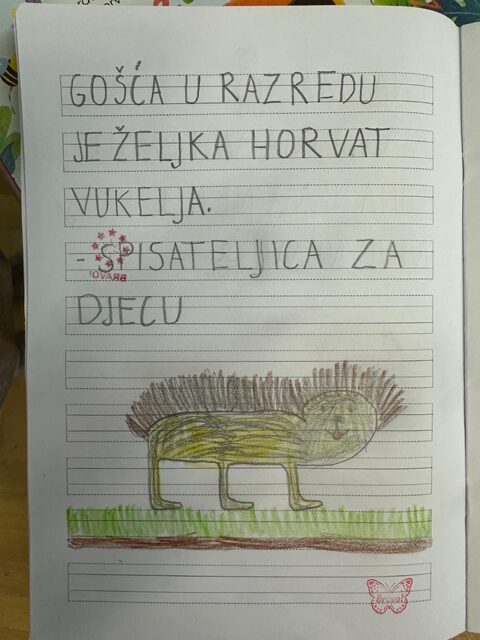 GOŠĆA U RAZREDU
JE ŽELJKA HORVAT
VUKELJA.
- SPISATELJICA ZA
BRAVO!
DJECU
Bravo!